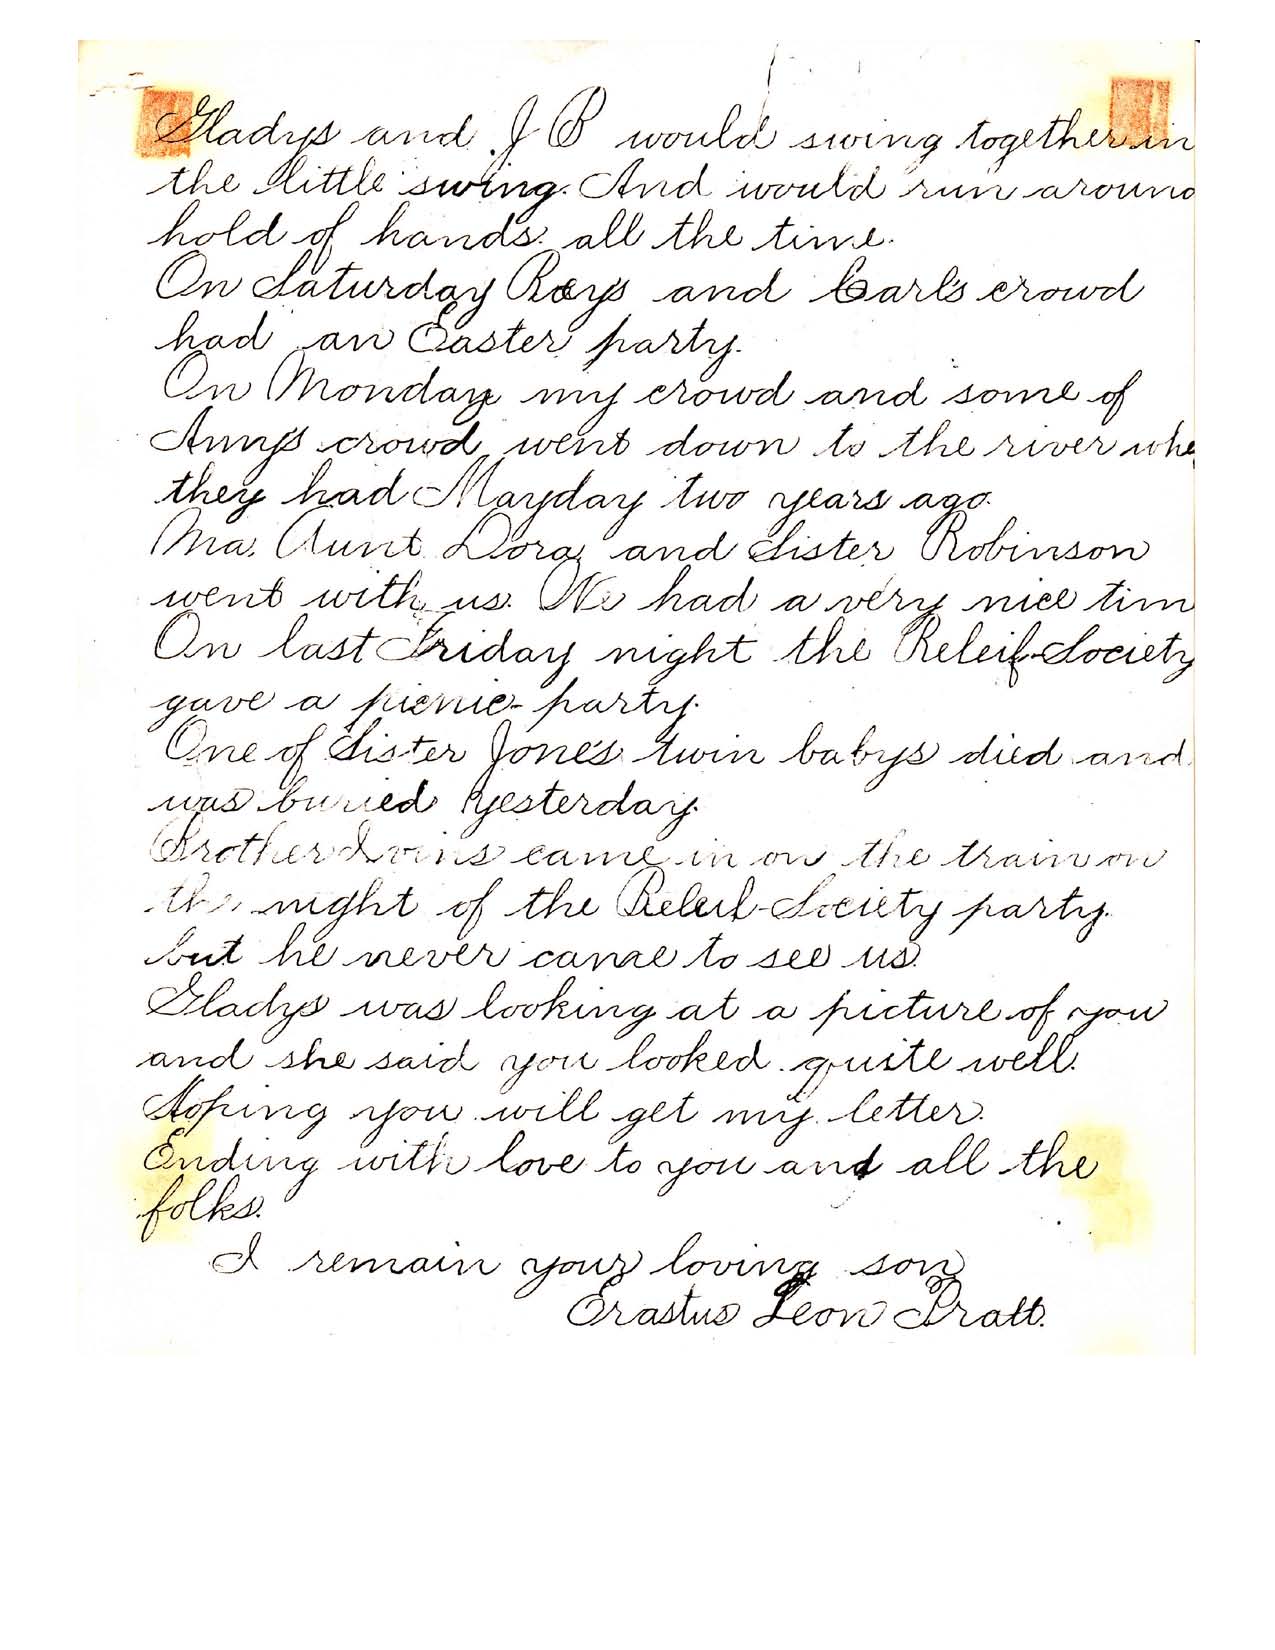 Gladys and J B would swing together in
the little swing. And would run around
hold of hands all the time.
On Saturday Roys and Carl's crowd
had an Easter party.
On Monday my crowd and some of
Amy's crowd went down to the river whe
they had Mayday two years ago.
Ma. Aunt Dora and Sister Robinson
went with us. We had a very nice tim
On last Friday night the Releif-Society
gave a picnic-party.
One of Sister Jone's twin babys died and
was buried yesterday.
Brother Ivins came in on the train on
the night of the Releif-Society party.
but he never came to see us.
Gladys was looking at a picture of you
and she said you looked quite well.
Hoping you will get my letter.
Ending with love to you and all the
folks.
I remain your loving son
Erastus Leon Pratt.